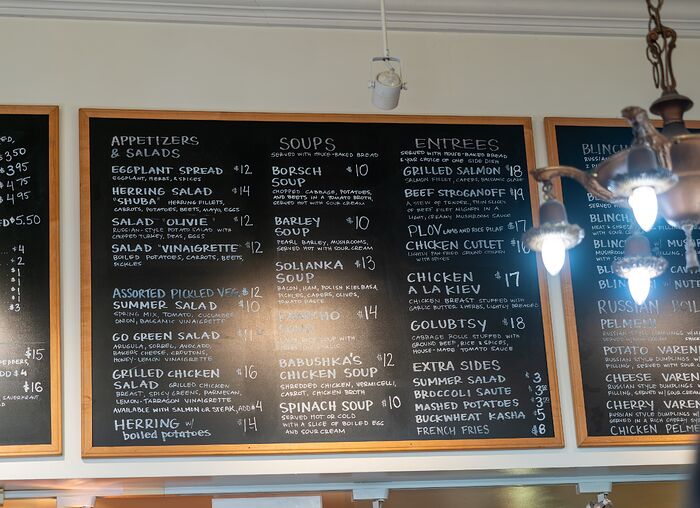 3.50
$3.95
$4.75
$4.95
$5.50
4
2
$1
1
$3
$15
ADD $4
$16
APPETIZERS
& SALADS
EGGPLANT SPREAD $12
EGGPLANT, HERBS, & SPICES
HERRING SALAD $14
"SHUBA" HERRING FILLETS,
CARROTS, POTATOES, BEETS, MAYO, EGGS
SALAD "OLIVIE" $12
RUSSIAN-STYLE POTATO SALAD WITH
CHOPPED TURKEY, PEAS, EGGS
SALAD "VINAIGRETTE" $12
BOILED POTATOES, CARROTS, BEETS,
PICKLES
ASSORTED PICKLED VEG. $12
SUMMER SALAD $10
SPRING MIX, TOMATO, CUCUMBER
ONION, BALSAMIC VINAIGRETTE
GO GREEN SALAD $11
ARUGULA, SORREL, AVOCADO,
BAKERS CHEESE, CROUTONS,
HONEY-LEMON VINAIGRETTE
GRILLED CHICKEN $16
SALAD GRILLED CHICKEN
BREAST, SPICY GREENS, PARMESAN,
LEMON-TARRAGON VINAIGRETTE
AVAILABLE WITH SALMON OR STEAK, ADD $4
HERRING W/ $14
boiled potatoes
SOUPS
SERVED WITH HOUSE-BAKED BREAD
BORSCH $10
SOUP
CHOPPED CABBAGE, POTATOES,
AND BEETS IN A TOMATO BROTH,
SERVED WITH SOUR CREAM
BARLEY $10
SOUP
PEARL BARLEY, MUSHROOMS,
SERVED HOT WITH SOUR CREAM
SOLIANKA $13
SOUP
BACON, HAM, POLISH KIELBASA
PICKLES, CAPERS, OLIVES,
TOMATO PASTE
$14
BABUSHKA'S $12
CHICKEN SOUP
SHREDDED CHICKEN, VERMICELLI,
CARROT, CHICKEN BROTH
SPINACH SOUP $10
SERVED HOT OR COLD
WITH A SLICE OF BOILED EGG
AND SOUR CREAM
ENTREES
SERVED WITH HOUSE-BAKED BREAD
& YOUR CHOICE OF ONE SIDE DISH
GRILLED SALMON $18
SALMON FILLET, CAPERS, BALSAMIC GLAZE
BEEF STROGANOFF $19
A STEW OF TENDER, THIN SLICES
OF BEEF FILET MIGNON IN A
LIGHT, CREAMY MUSHROOM SAUCE
PLOV LAMB AND RICE PILAF
CHICKEN CUTLET
LIGHTLY PAN FRIED GROUND CHICKEN
WITH SPICES
CHICKEN $17
A LA KIEV
CHICKEN BREAST STUFFED WITH
GARLIC BUTTER & HERBS, LIGHTLY BREADED
GOLUBTSY $18
CABBAGE ROLLS STUFFED WITH
GROUND BEEF, RICE & SPICES,
HOUSE-MADE TOMATO SAUCE
EXTRA SIDES
SUMMER SALAD $3
BROCCOLI SAUTE $3
MASHED POTATOES $3
BUCKWHEAT KASHA $5
FRENCH FRIES $8
BLINCH
RUSSIAN
BLINCH
WITH SOUR
BLINCH
BLINC
BLIN
RUSSIAN
PELMENI
RUSSIAN STYLE DUMPLINGS
SERVED WITH SOUR
POTATO VAREN
RUSSIAN STYLE DUMPLINGS
FILLING, SERVED WITH SOUR
CHEESE VAREN
RUSSIAN STYLE DUMPLINGS
FILLING, SERVED WITH SOUR
CHERRY VAREN
RUSSIAN STYLE DUMPLINGS
SERVED IN A RICH CHERRY
CHICKEN PELME